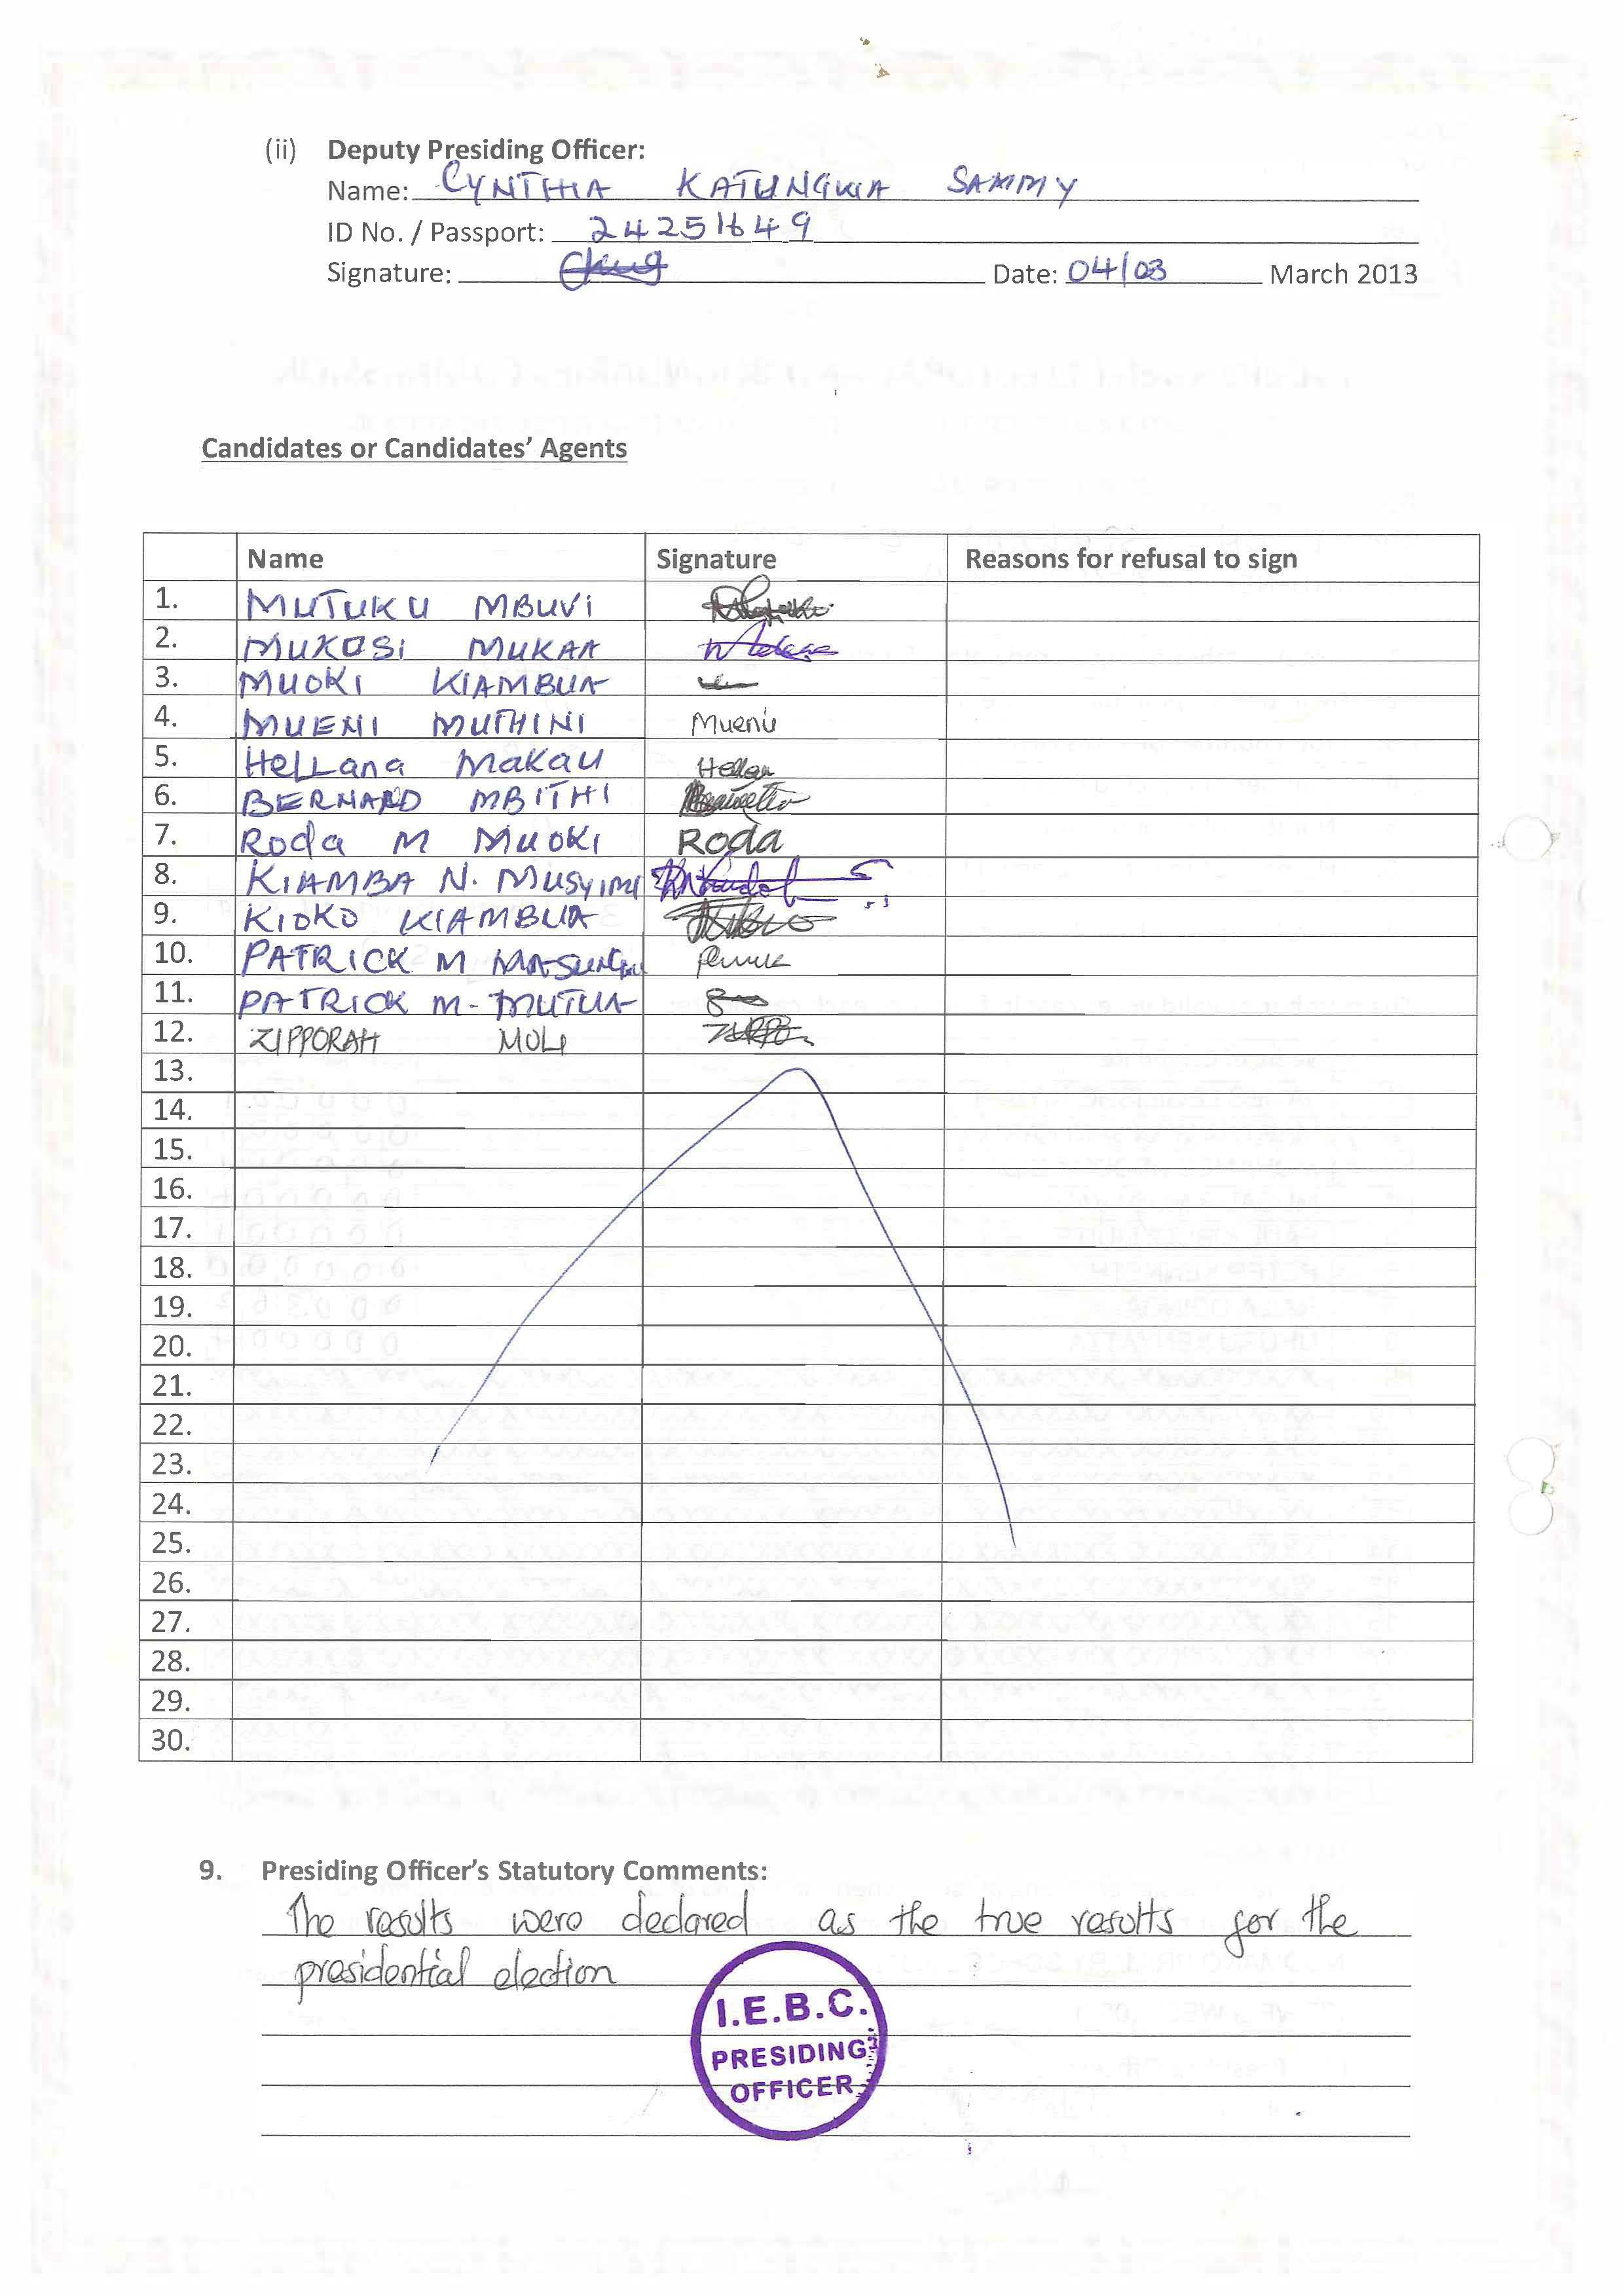 (ii) Deputy Presiding Officer:
Name: CYNTHIA KATUNGWA SAMMY
ID No. / Passport: 24251649
Signature: Date: 04/03 March 2013
Candidates or Candidates' Agents
Name Signature Reasons for refusal to sign
1. MUTUKU MBUVI
2. MUKOSI MUKAA
3. MUOKI KIAMBUA
4. MUENI MUTHINI Mueni
5. HeLLana Makau Hellan
6. BERNARD MBITHI
7. Roda M MuoKi RODA
8. KIAMBA N. MUSYIMI
9. KIOKO KIAMBUA
10. PATRICK M
11. PATRICK M- MUTUA
12. ZIPPORAH MULI
13.
14.
15.
16.
17.
18.
19.
20.
21.
22.
23.
24.
25.
26.
27.
28.
29.
30.
9. Presiding Officer's Statutory Comments:
The results were declared as the true results for the
presidential election
I.E.B.C.
PRESIDING
OFFICER